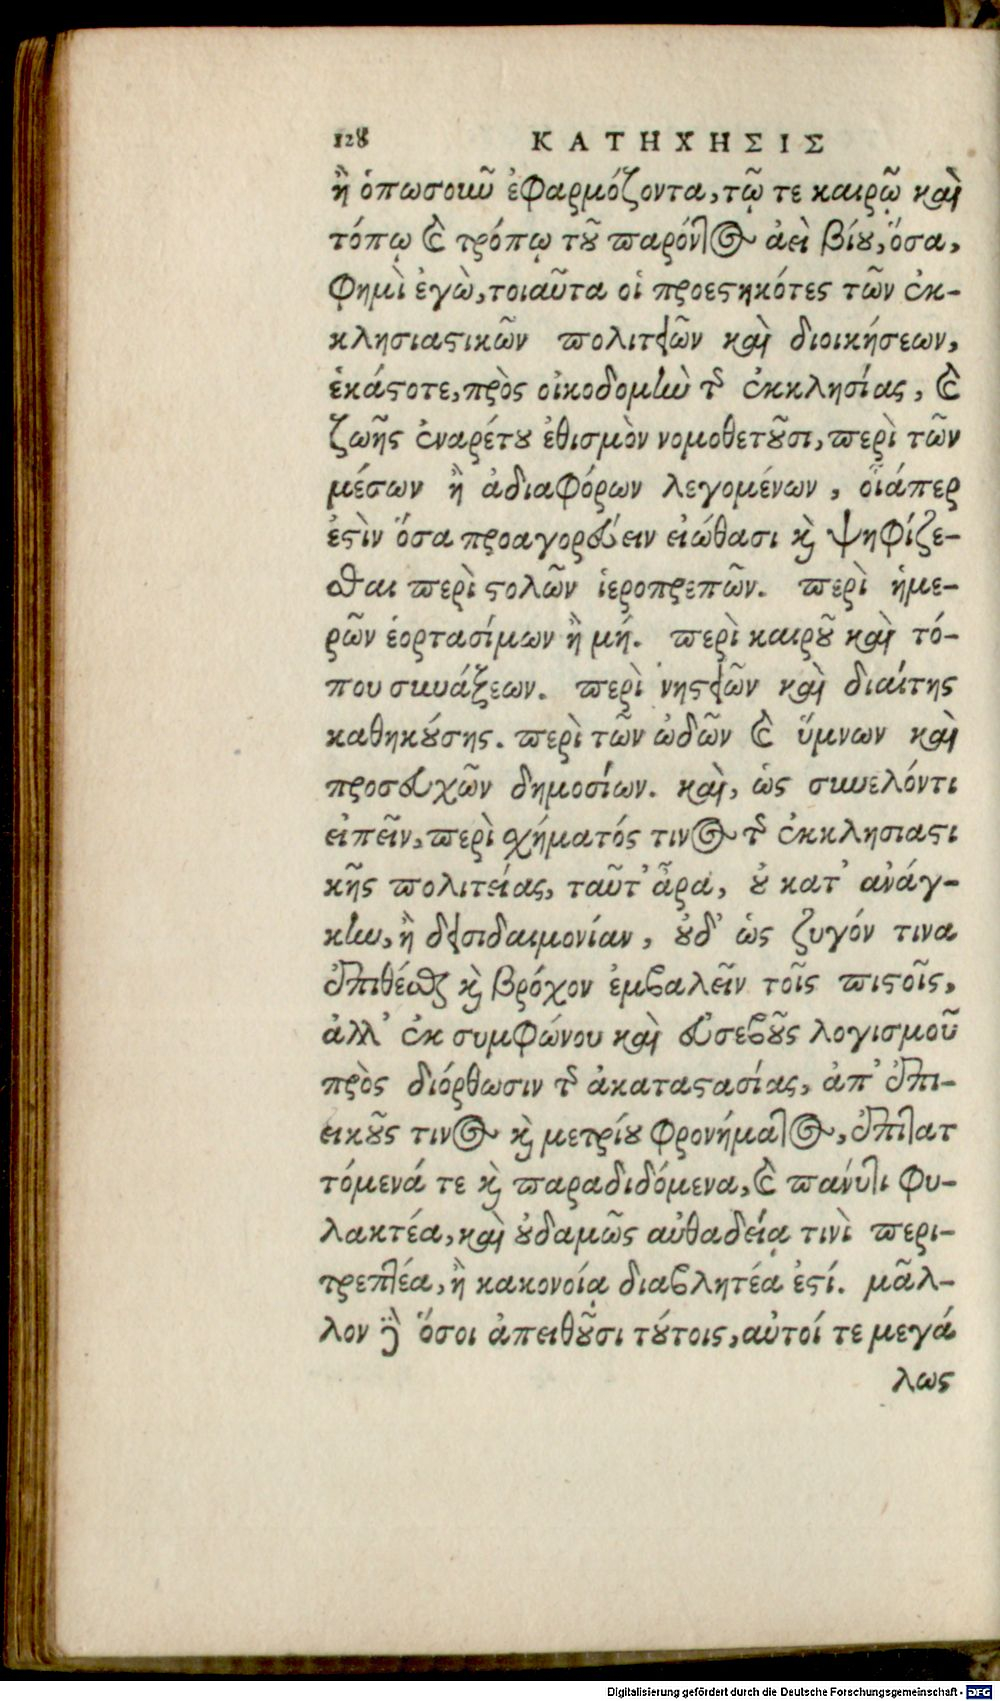 128 ΚΑΤΗΧΗΣΙΣ
ἢ ὁπωσοιῦ ἐφαρμόζοντα, τῷ τε καιρῷ καὶ
τόπῳ ϗ τρόπῳ τȣ͂ παρόντος ἀεὶ βίȣ, ὅσα,
φημὶ ἐγὼ, τοιαῦτα οἱ προεϛηκότες τῶν ἐκ-
κλησιαϛικῶν πολιτειῶν καὶ διοικήσεων,
ἑκάϛοτε, πρὸς οἰκοδομὴν τῆς ἐκκλησίας, ϗ
ζωῆς ἐναρέτȣ ἐθισμὸν νομοθετȣ͂σι, περὶ τῶν
μέσων ἢ ἀδιαφόρων λεγομένων, οἷάπερ
ἐϛὶν ὅσα προαγορεύειν εἰώθασι ϗ ψηφίζε-
σθαι περὶ ϛολῶν ἱεροπρεπῶν. περὶ ἡμε-
ρῶν ἑορτασίμων ἢ μή. περὶ καιρȣ͂ καὶ τό-
που συνάξεων. περὶ νηϛειῶν καὶ διαίτης
καθηκȣ́σης. περὶ τῶν ὠδῶν ϗ ὕμνων καὶ
προσευχῶν δημοσίων. καὶ, ὡς συνελόντι
εἰπεῖν, περὶ σχήματός τινος τῆς ἐκκλησιαϛι
κῆς πολιτείας, ταῦτ᾽ ἆρα, ȣ̓ κατ᾽ ἀνάγ-
κην, ἢ δεισιδαιμονίαν, ȣ̓δ᾽ ὡς ζυγόν τινα
ἐπιθέσθαι ϗ βρόχον ἐμβαλεῖν τοῖς πιϛοῖς,
ἀλλ᾽ ἐκ συμφώνου καὶ εὐσεβȣ͂ς λογισμοῦ
πρὸς διόρθωσιν τῆς ἀκαταϛασίας, ἀπ᾽ ἐπι-
εικȣ͂ς τινος ϗ μετρίȣ φρονήματος, ἐπιτατ
τόμενά τε ϗ παραδιδόμενα, ϗ πάνυτι φυ-
λακτέα, καὶ ȣ̓δαμῶς αὐθαδείᾳ τινὶ περι-
τρεπτέα, ἢ κακονοίᾳ διαβλητέα ἐϛί. μᾶλ-
λον δὲ ὅσοι ἀπειθȣ͂σι τȣ́τοις, αὐτοί τε μεγά
λως
Digitalisierung gefördert durch die Deutsche Forschungsgemeinschaft - DFG